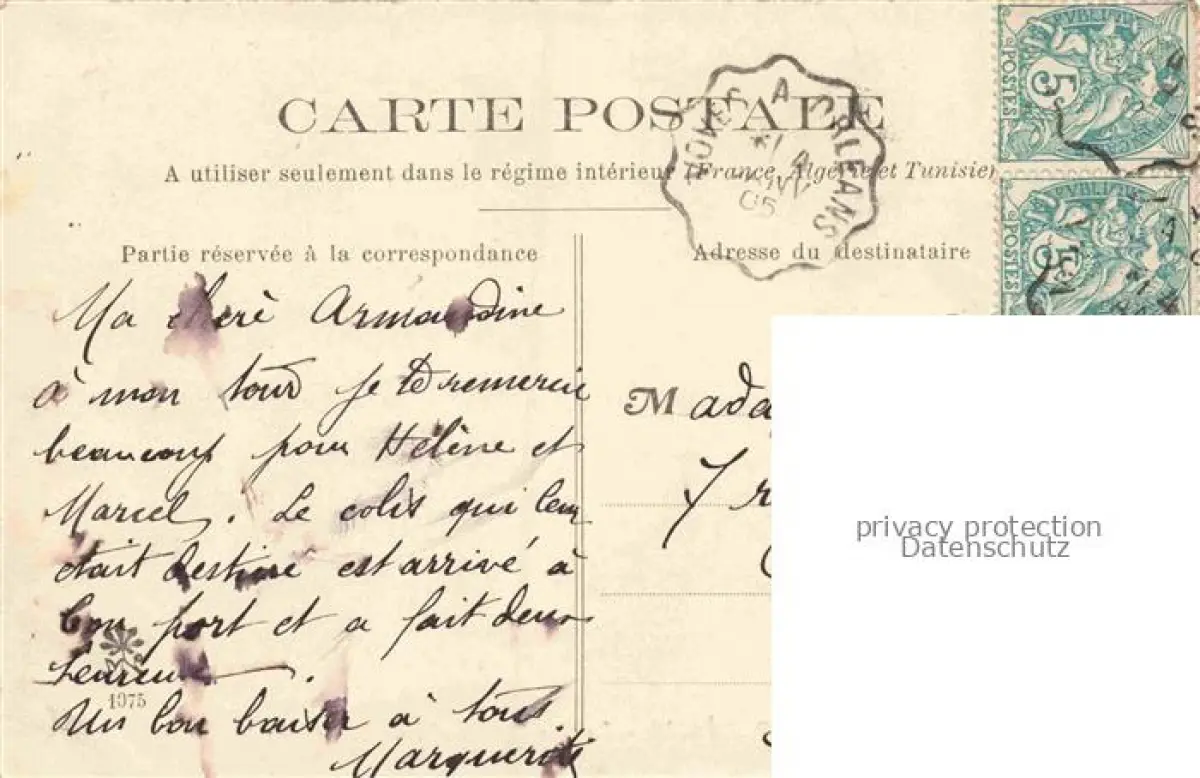 CARTE POSTALE
A utiliser seulement dans le régime intérieur (France, Algérie et Tunisie)
Partie réservée à la correspondance
Ma chère Armandine
à mon tour je te remercie
beaucoup pour Hélène et
Marcel. Le colis qui leur
était destiné est arrivé à
bon port et a fait deux
heureux.
Un bon baiser à tous.
Marguerite
1975
A ORLEANS
05
RÉPUBLIQUE
POSTES
5
POSTES
5
Adresse du destinataire
Mada
privacy protection
Datenschutz